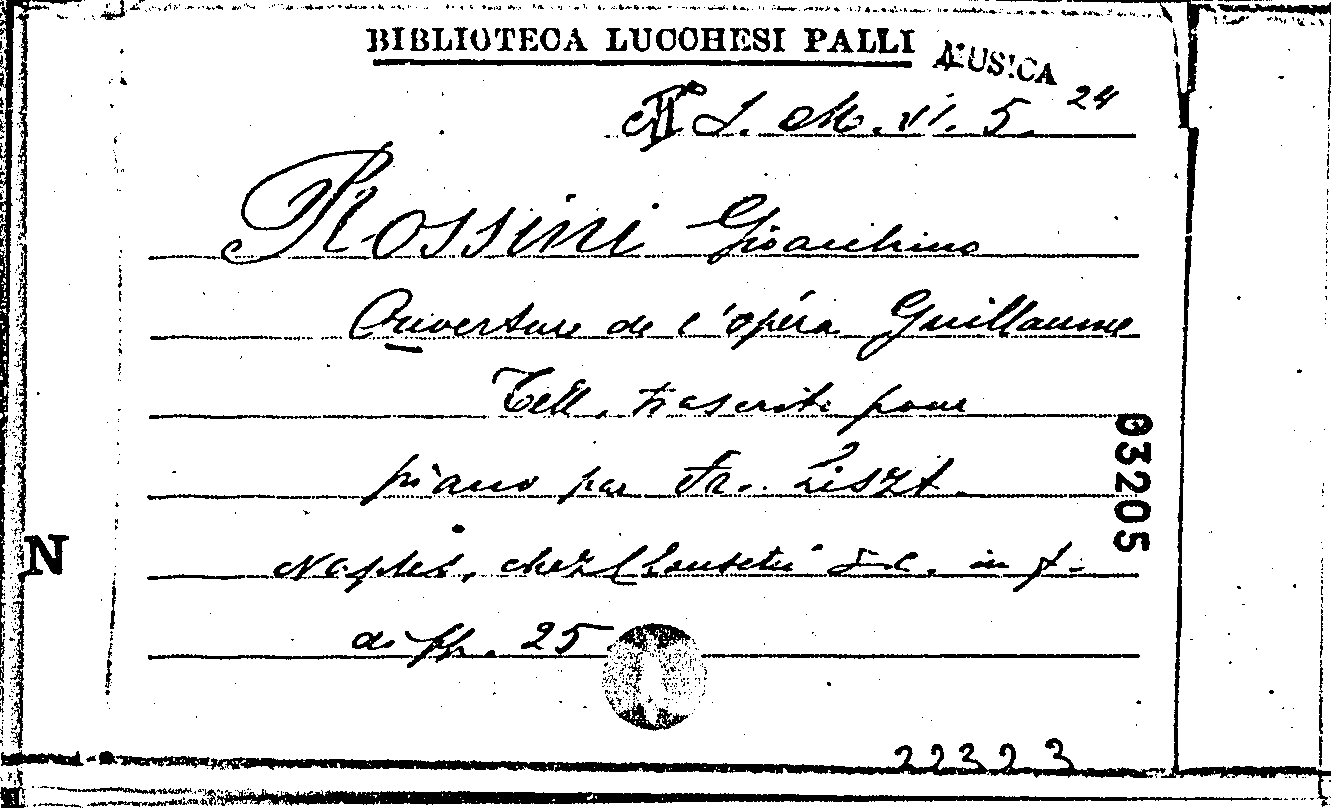 BIBLIOTECA LUCCHESI PALLI
MUSICA
L. M. VI. 5. 24
Rossini Gioacchino
Ouverture de l'opéra Guillaume
Tell. trascrite pour
piano par Fr. Liszt.
Naples, chez Clausetti & C. in f.
di pp. 25
03205
N
22323